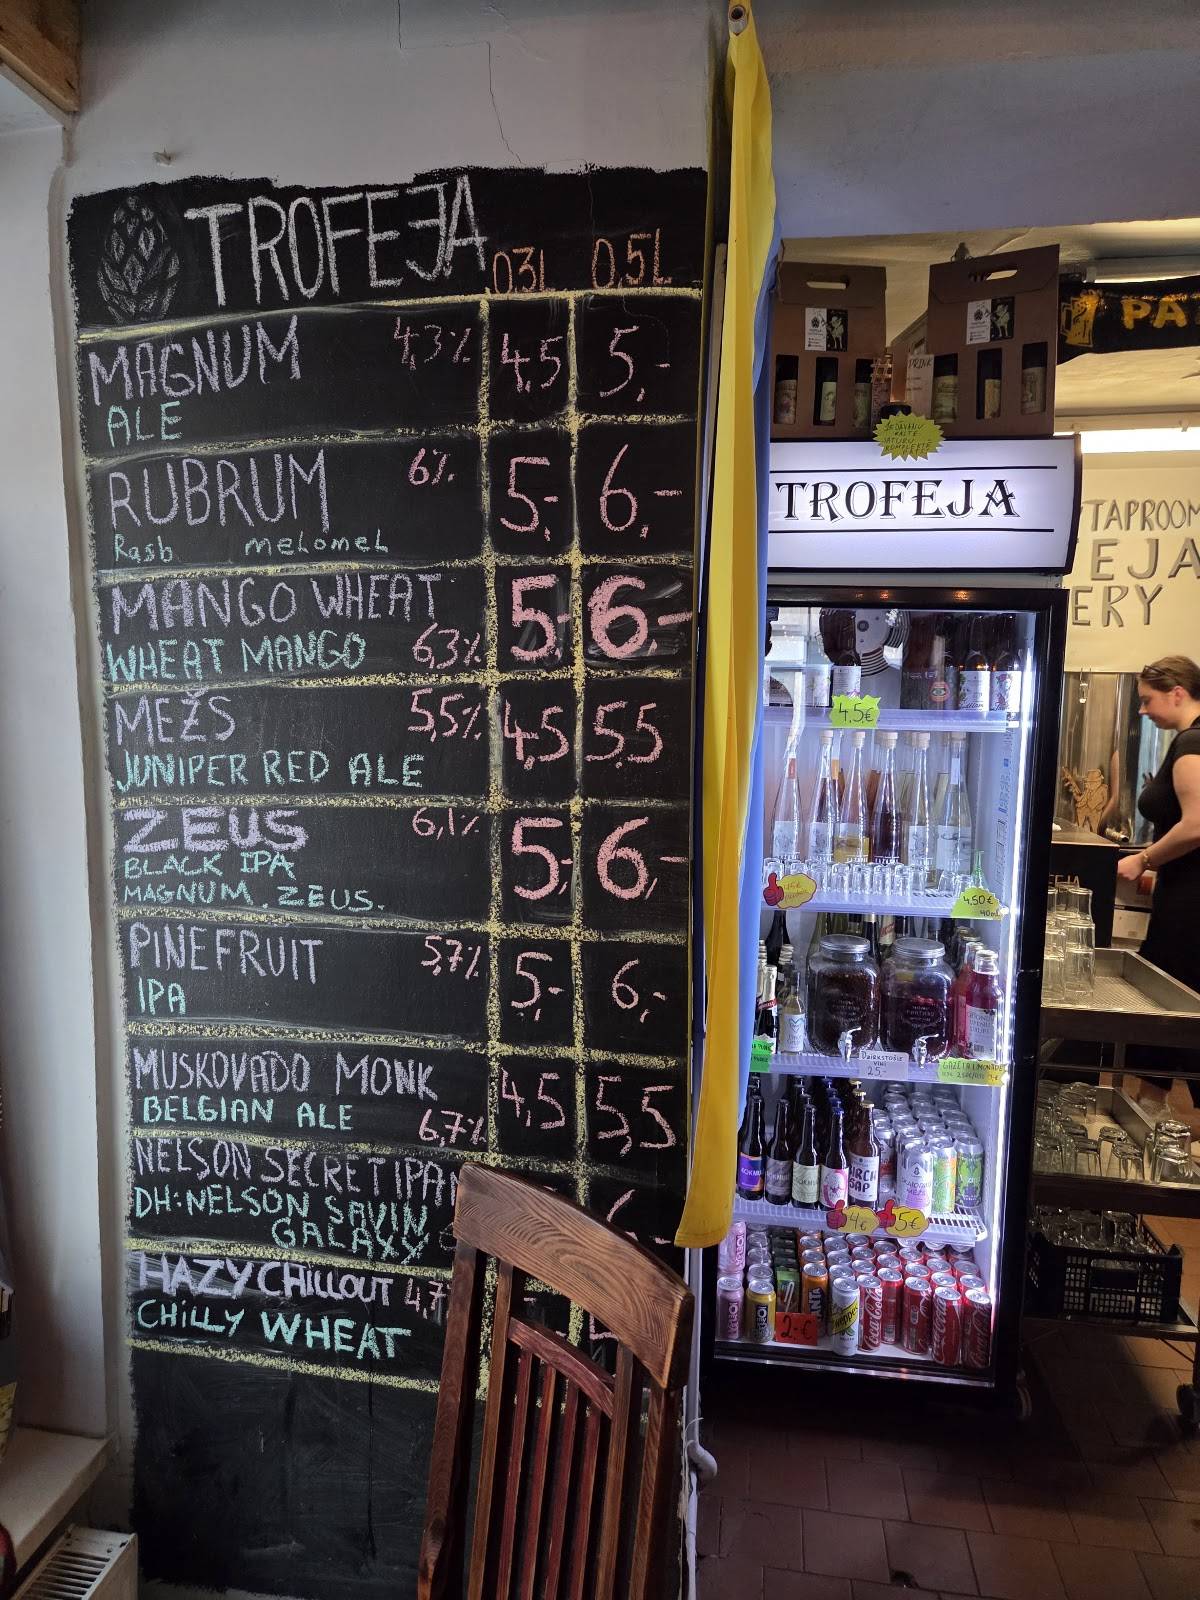 TROFEJA 0,3L 0,5L
MAGNUM 4,3% 4,5 5,-
ALE
RUBRUM 6% 5,- 6,-
Rasb. melomel
MANGO WHEAT 5,- 6,-
WHEAT MANGO 6,3%
MEŽS 5,5% 4,5 5,5
JUNIPER RED ALE
ZEUS 6,1% 5,- 6,-
BLACK IPA
MAGNUM. ZEUS.
PINEFRUIT 5,7% 5,- 6,-
IPA
MUSKOVADO MONK 4,5 5,5
BELGIAN ALE 6,7%
NELSON SECRET IPA
DH:NELSON SAVIN
GALAXY
HAZY CHILLOUT 4,7
CHILLY WHEAT
PA
DRINK
TROFEJA
TAPROOM
EJA
ERY
4,5€
4,50€
40ml
DZIRKSTOŠIE
VĪNI
25.-
GAZETA LIMONADE
4€
5€
2.-€
Coca-Cola